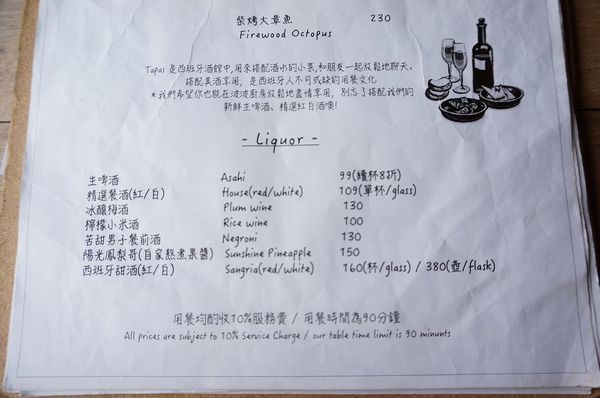 柴烤大章魚 230
Firewood Octopus
Tapas 是西班牙酒館中,用來搭配酒水的小菜,和朋友一起放鬆地聊天、
搭配美酒享用, 是西班牙人不可或缺的用餐文化
*我們希望你也能在波波廚房放鬆地盡情享用, 別忘了搭配我們的
新鮮生啤酒、精選紅白酒噢!
~ Liquor ~
生啤酒 Asahi 99(續杯8折)
精選餐酒(紅/白) House(red/white) 109(單杯/glass)
冰釀梅酒 Plum wine 130
檸檬小米酒 Rice wine 100
苦甜男子餐前酒 Negroni 130
陽光鳳梨哥(自家熬煮果醬) Sunshine Pineapple 150
西班牙甜酒(紅/白) Sangria(red/white) 160(杯/glass) / 380(壺/flask)
用餐均酌收10%服務費 / 用餐時間為90分鐘
All prices are subject to 10% Service Charge / our table time limit is 90 minunts